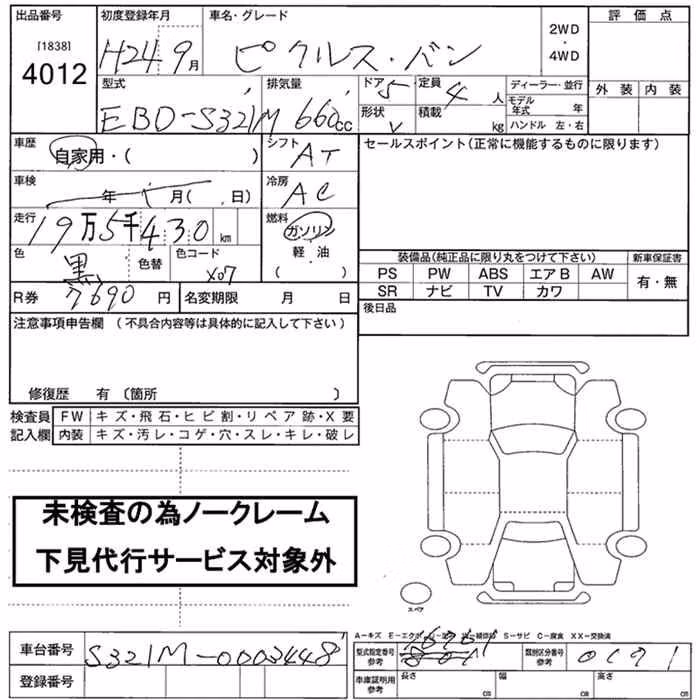 出品番号 初度登録年月 車名・グレード 評価点
[1838] 4012 H24 9月 ピクルス・バン 2WD・4WD
型式 排気量 ドア 5 定員 4人 ディーラー・並行 外装 内装
EBD-S321M 660cc 形状 V 積載 kg モデル年式 年
ハンドル 左・右
車歴 自家用・( ) シフト AT セールスポイント(正常に機能するものに限ります)
車検 年 月( 、日) 冷房 AC
走行 19万5千430km 燃料 ガソリン
色 黒 色替 色コード X07 軽・油 ( )
装備品(純正品に限り丸をつけて下さい) 新車保証書
PS PW ABS エアB AW 有・無
SR ナビ TV カワ
R券 7690円 名変期限 月 日 後日品
注意事項申告欄 (不具合内容等は具体的に記入して下さい)
修復歴 有〔箇所 〕
検査員 FW キズ・飛石・ヒビ割・リペア跡・X要
記入欄 内装 キズ・汚レ・コゲ・穴・スレ・キレ・破レ
未検査の為ノークレーム
下見代行サービス対象外
スペア
A-キズ S-サビ C-腐食 XX-交換済
車台番号 S321M-0003448 型式指定番号 参考 類別区分番号 参考 0191
登録番号 車庫証明用 参考 長さ cm 幅 cm 高さ cm